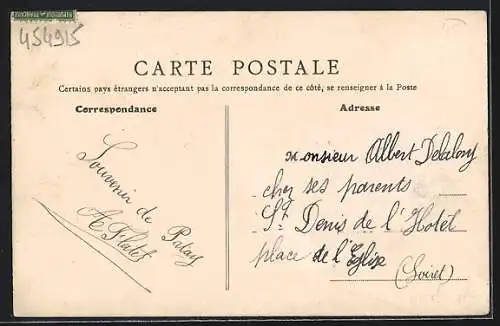 454915
CARTE POSTALE
Certains pays étrangers n'acceptant pas la correspondance de ce côté, se renseigner à la Poste
Correspondance
Adresse
Souvenir de Patay
Monsieur Albert Delalory
chez ses parents
St Denis de l'Hotel
place de l'Eglise
(Loiret)